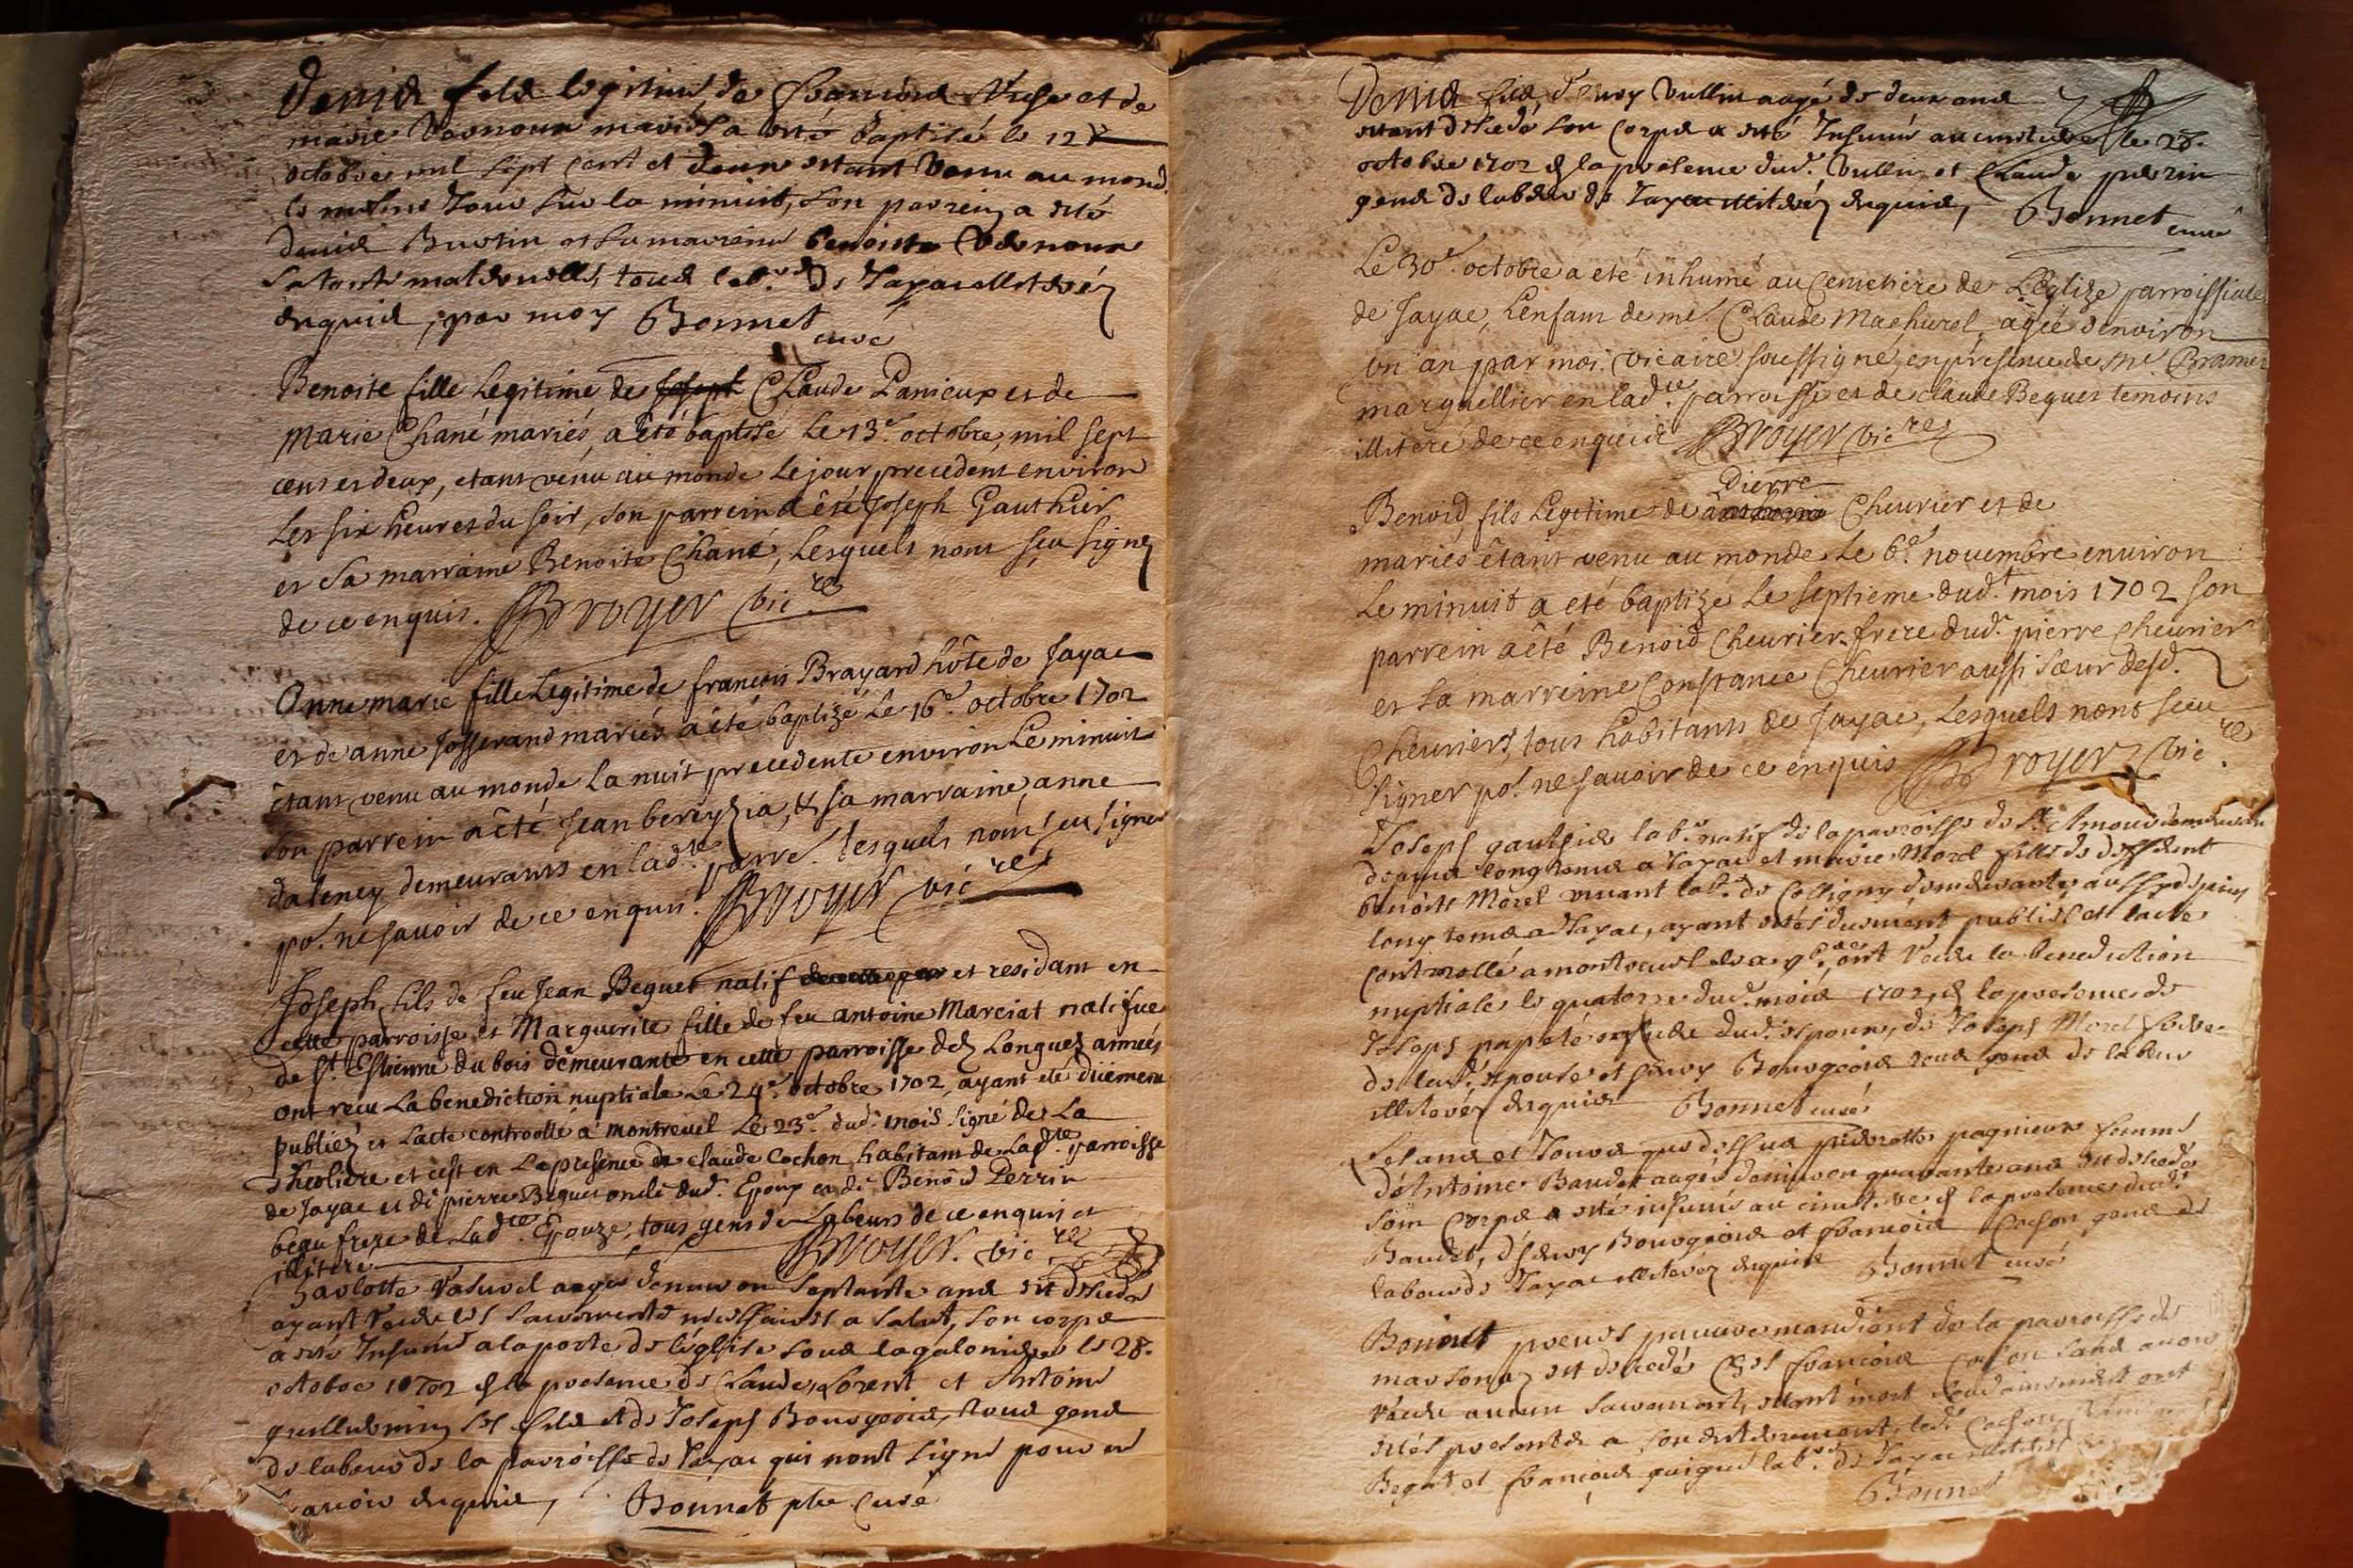 Denis fils legitime de francois et de
marie Vernoux mariés a esté baptisé le 12e
octobre mil sept cent et deux estant venu au mond.
le mesme Jour sur la minuit, son parrein a esté
denis Burtin et sa marreine benoiste Vernoux
sa tante maternelle, tous lab.rs de Jayac illiterés
enquis, par moy Bonnet
curé
Benoite fille Legitime de Joseph Claude Panieux et de
Marie Chané mariés, a èté baptisé Le 13e. octobre, mil sept
cent et deux, etant venu au monde Le jour precedent environ
Les six heures du soir, son parrein a èté Joseph Gauthier
et sa marraine Benoite Chané, Lesquels nont sçu signer
de ce enquis. Broyer vic.re
Anne marie fille Legitime de francois Brayard hôte de Jayac
et de anne Josserand mariés a èté baptizé Le 16e. octobre 1702
ètant venu au monde La nuit precedente environ Le minuit
son parrein a èté Jean bereyzia, & sa marraine anne
daleney demeurants en lad.te parre. Lesquels nont sçu signer
po.r ne savoir de ce enquis. Broyer vic.re
Joseph fils de feu Jean Beguet natif et residant en
cette parroisse et Marguerite fille de feu antoine Marciat natifue
de St. Estienne du bois demeurante en cette parroisse dez Longues années
ont recu La benediction nuptiale Le 24e. octobre 1702, ayant eté düement
publiez et Lacte controollé à montreuel Le 23e. dud. mois signé de La
theoliere et cest en La presence de claude Cochon habitant de Lad.te parroisse
de Jayac et de pierre Beguet oncle dud. Epoux et de Benoid Perrin
beau frere de Lad.te Epouze, tous gens de Labeurs de ce enquis et
illitere Broyer. vic.re
aagée denuiron septante ans est decedée
ayant receu les sacrements necessaires a salut, son corps
a esté Inhumé a la porte de léglise sous la galonier le 28.
octobre 1702 en la presence de Claude Lorent et Antoine
guillermin ses fils et de Joseph Bourgeois, tous gens
de labeur de la parroisse de Jayac qui nont signé pour ne
scavoir enquis, Bonnet ptre curé
Denis fils d'henry Vullin aagé de deux ans
estant decedé son corps a esté Inhumé au cimetiere le 28.
octobre 1702 en la presence dud. Vullin et Claude perrin
gens de labeur de Jayac illiterés enquis, Bonnet curé
Le 30e. octobre a eté inhumé au Cemetiere de L'eglize parroissiale
de Jayac, L'enfant de me. Claude Machurel, agée d'environ
un an par moi vicaire soussigné, en presence de me. Cramer
marguellier en lad.te parroisse et de claude Beguet temoins
illiteré de ce enquis Broyer vic.re
Pierre
Benoid fils Legitime de Cheurier et de
mariés ètant venu au monde Le 6e. nouembre environ
Le minuit a eté baptizé Le septieme dud.t mois 1702 son
parrein a èté Benoid Cheurier frere dud. pierre Cheurier
et sa marreine Constance Cheurier aussi sœur desd.
Cheuriers, tous habitants de Jayac, Lesquels nont sceu
signer po.r ne savoir de ce enquis Broyer vic.re
Joseph gauthier lab.r natif de la parroisse de St. Amour demeurant
depuis long tems a Jayac et marie Morel fille de deffunt
benoist Morel viuant lab.r de Colligny demeurante aussy depuis
long tems a Jayac, ayant estés duement publiés et lacte
controllé a montreuel ont receu la benediction
nuptiale le quatorze dud. mois 1702, en la presence de
Joseph dud. espoux, de Joseph Morel frere
de lad. espouse et henry Bourgeois tous gens de labeur
illiterés enquis Bonnet curé
Les ans et Jours que dessus pierrotte pagnieux femme
d'Antoine Baudet aagée denuiron quarante ans est decedée
son corps a esté inhumé au cimet.re en la presence dud.
Baudet, d'henry Bourgeois et francois Cochon gens de
labeur de Jayac illiterés enquis Bonnet curé
Bonnet pauure mandiant de la parroisse de
marsonas est decedé ches francois Cochon sans auoir
receu aucun sacrement, estant mort ont
estés presents a son enterrement, led. Cochon
Begut et francois lab.rs de Jayac
Bonnet